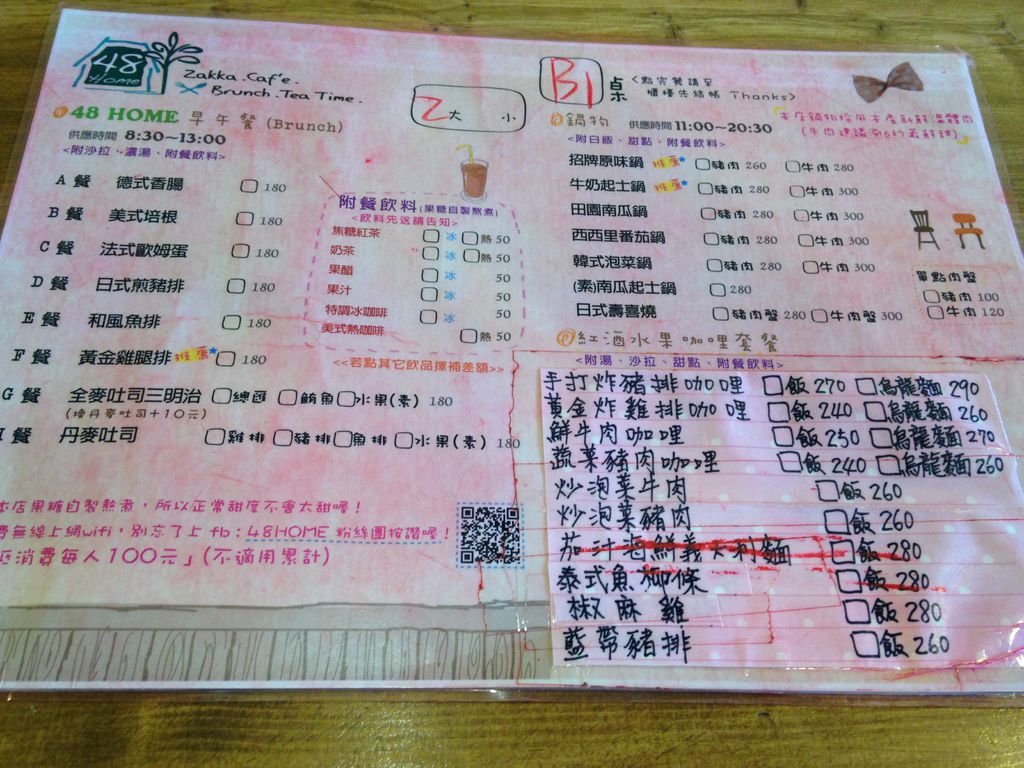 48
Home
Zakka.Caf'e.
Brunch.Tea Time.
2大 小
B1桌
<點完餐請至
櫃檯先結帳 Thanks>
48 HOME 早午餐(Brunch)
供應時間 8:30~13:00
<附沙拉、濃湯、附餐飲料>
A 餐 德式香腸 180
B 餐 美式培根 180
C 餐 法式歐姆蛋 180
D 餐 日式煎豬排 180
E 餐 和風魚排 180
F 餐 黃金雞腿排 推薦 180
G 餐 全麥吐司三明治 總匯 鮪魚 水果(素) 180
(換丹麥吐司+10元)
餐 丹麥吐司 雞排 豬排 魚排 水果(素) 180
附餐飲料(果糖自製熬煮)
<飲料先送請告知>
焦糖紅茶 冰 熱 50
奶茶 冰 熱 50
果醋 冰 50
果汁 冰 50
特調冰咖啡 冰 50
美式熱咖啡 熱 50
<<若點其它飲品擇補差額>>
本店果糖自製熬煮，所以正常甜度不會太甜喔！
費無線上網wifi，別忘了上 fb：48HOME 粉絲團按讚喔！
低消費每人100元」(不適用累計)
鍋物 供應時間 11:00~20:30
<附白飯、甜點、附餐飲料>
本店鍋物採用本產新鮮溫體肉
招牌原味鍋 推薦 豬肉 260 牛肉 280
牛奶起士鍋 推薦 豬肉 280 牛肉 300
田園南瓜鍋 豬肉 280 牛肉 300
西西里番茄鍋 豬肉 280 牛肉 300
韓式泡菜鍋 豬肉 280 牛肉 300
(素)南瓜起士鍋 280
日式壽喜燒 豬肉盤 280 牛肉盤 300
單點肉盤
豬肉 100
牛肉 120
紅酒水果咖哩套餐
<附湯、沙拉、甜點、附餐飲料>
手打炸豬排咖哩 飯 270 烏龍麵 290
黃金炸雞排咖哩 飯 240 烏龍麵 260
鮮牛肉咖哩 飯 250 烏龍麵 270
蔬菜豬肉咖哩 飯 240 烏龍麵 260
炒泡菜牛肉 飯 260
炒泡菜豬肉 飯 260
茄汁海鮮義大利麵 飯 280
泰式魚柳條 飯 280
椒麻雞 飯 280
藍帶豬排 飯 260